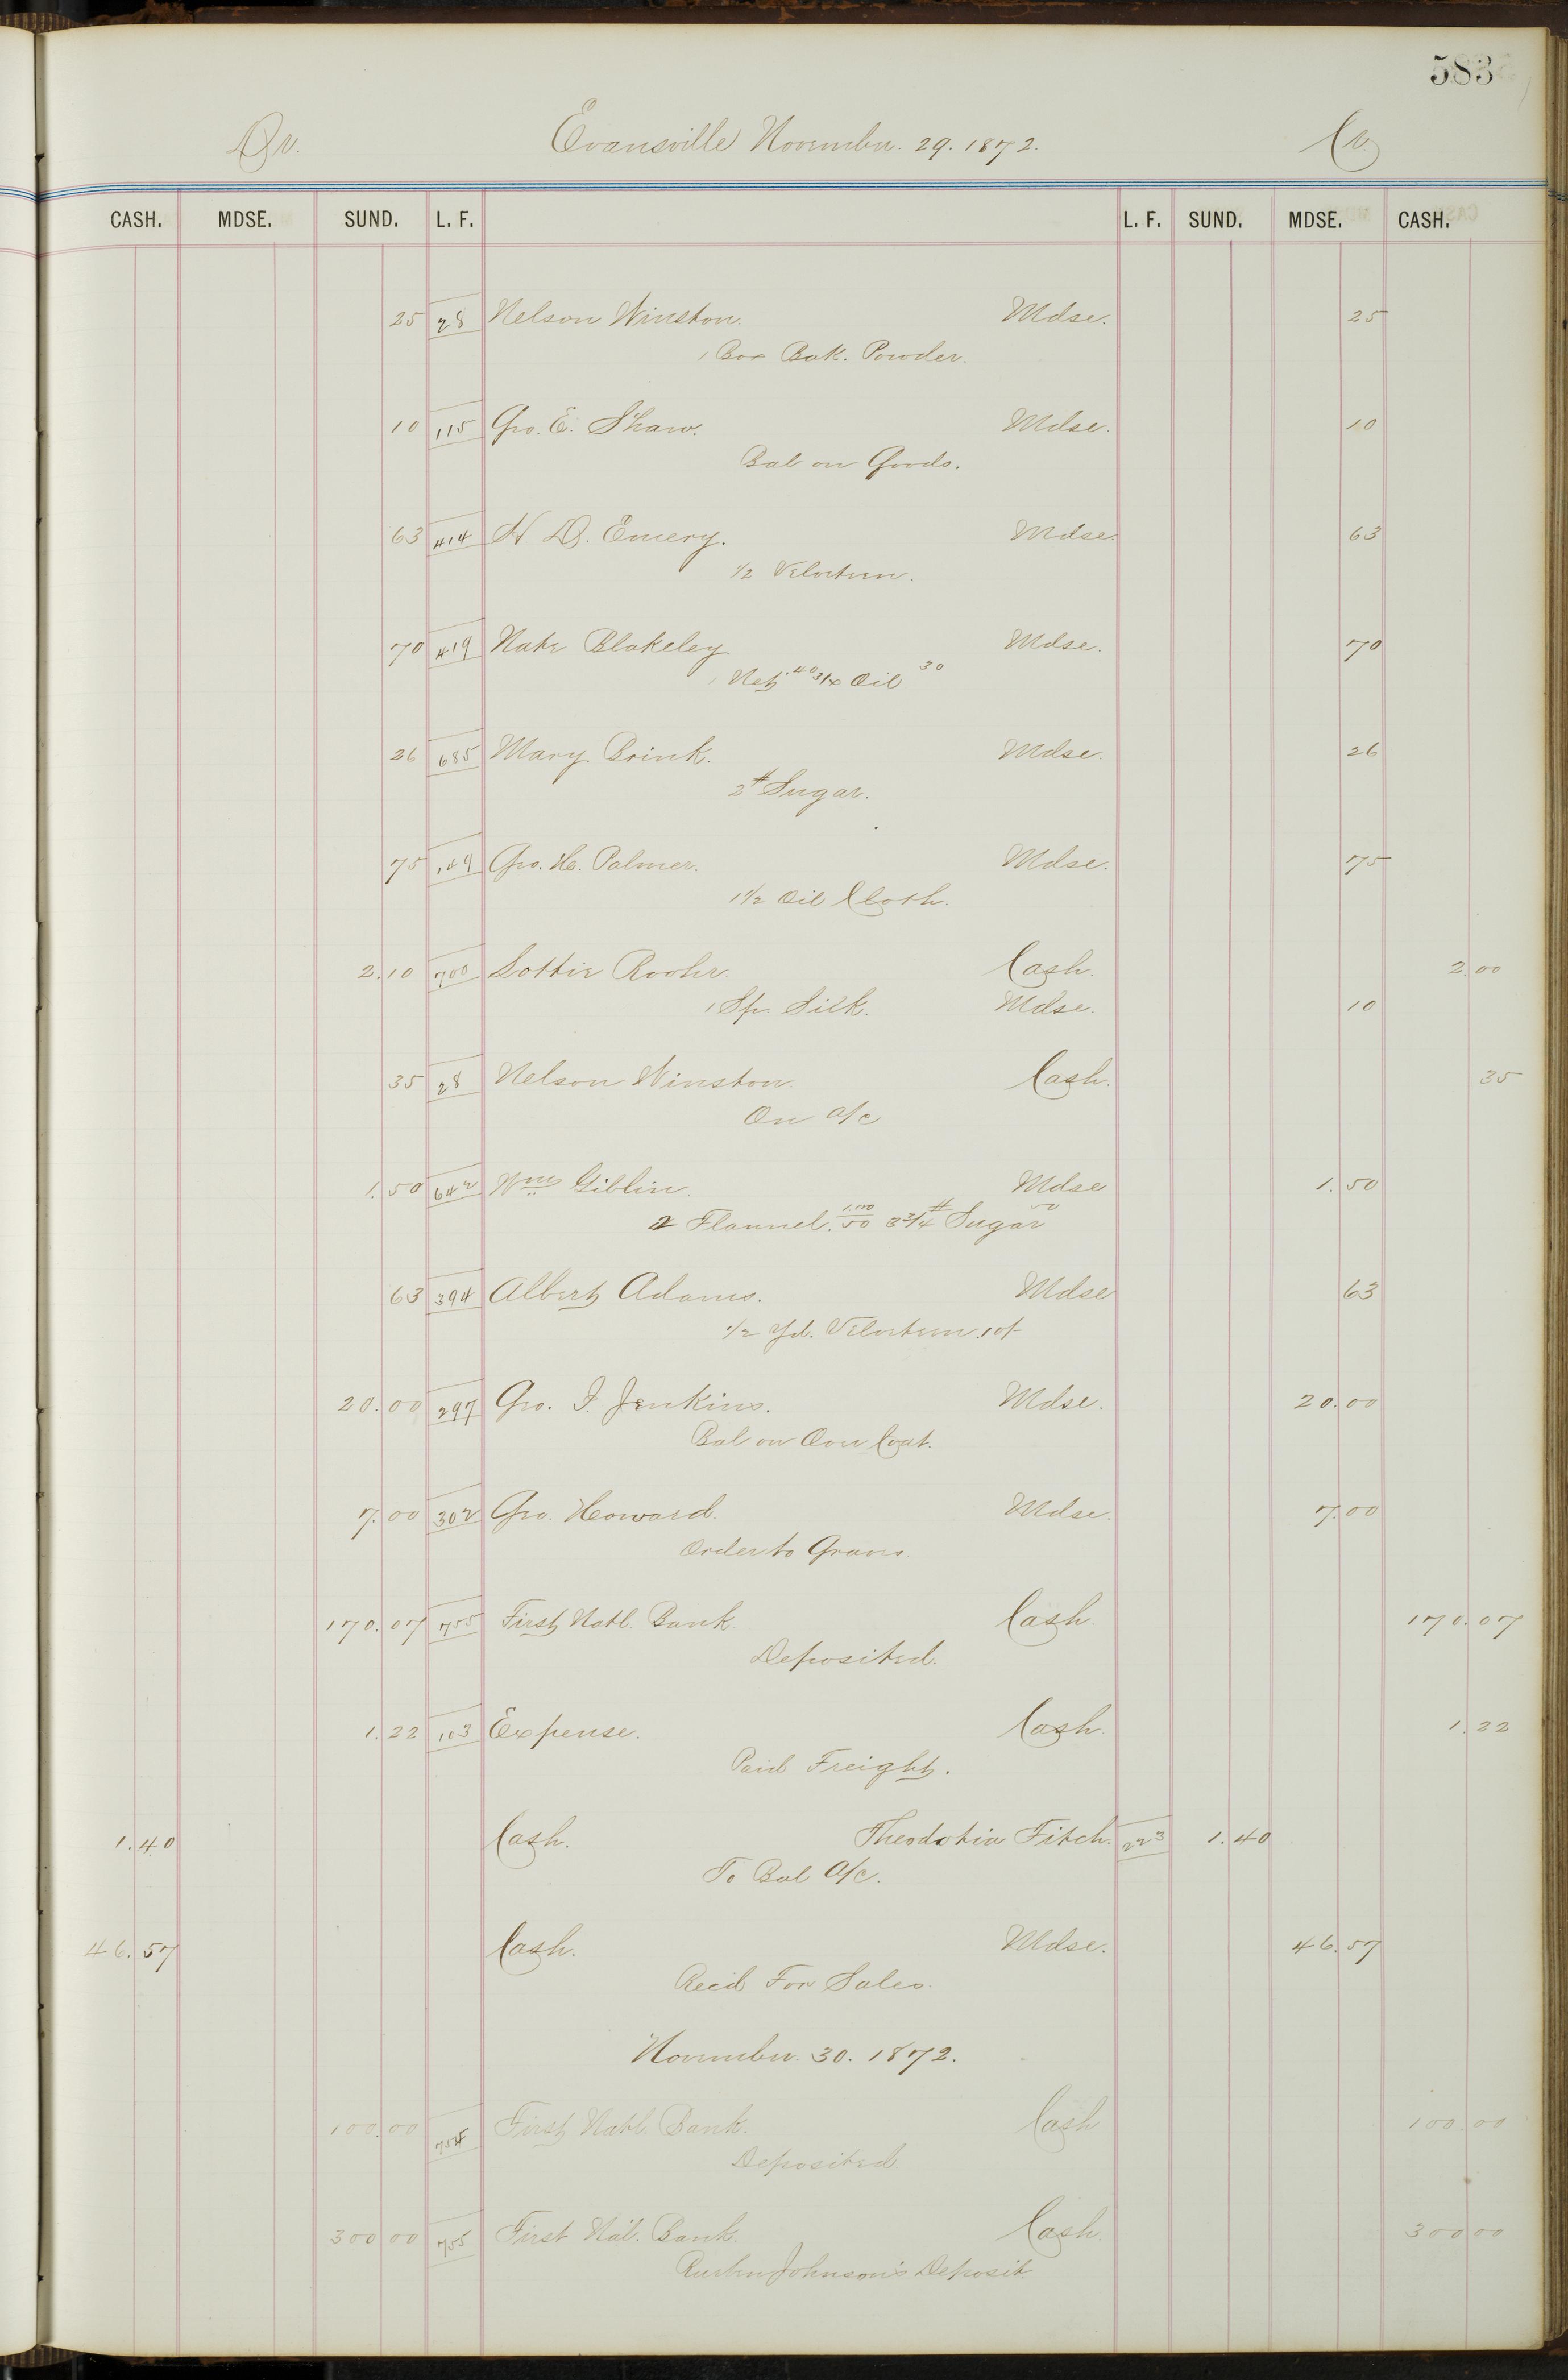 583
Dr. Evansville November. 29. 1872. Cr.
CASH. MDSE. SUND. L. F. L. F. SUND. MDSE. CASH.
25 28 Nelson Winston. Mdse. 25
1 Box Bak. Powder.
10 115 Geo. E. Shaw. Mdse. 10
Bal on Goods.
63 414 H D. Emery. Mdse. 63
1/2 Velveteen.
70 419 Nate Blakeley Mdse. 70
1 Net. 40 Oil 30
26 685 Mary. Brink. Mdse. 26
2# Sugar.
75 149 Geo. H. Palmer. Mdse. 75
1 1/2 Oil Cloth.
2.10 700 Lottie Roohr. Cash. 2.00
1 Sp. Silk. Mdse. 10
35 28 Nelson Winston. Cash. 35
On a/c
1.50 642 Wm Giblin. Mdse 1.50
2 Flannel. 50 1.00 3 3/4# Sugar 50
63 394 Albert Adams. Mdse 63
1/2 Yd. Velveteen.
20.00 297 Geo. F. Jenkins. Mdse. 20.00
Bal on Over Coat.
7.00 302 Geo. Howard. Mdse. 7.00
Order to Graves
170.07 755 First Natl. Bank. Cash. 170.07
Deposited.
1.22 103 Expense. Cash. 1.22
Paid Freight.
1.40 Cash. Theodotia Fitch. 223 1.40
To Bal a/c.
46.57 Cash. Mdse. 46.57
Recd For Sales.
November. 30. 1872.
100.00 755 First Natl. Bank. Cash 100.00
Deposited.
300 00 755 First Nat. Bank. Cash. 300 00
Reuben Johnson's Deposit